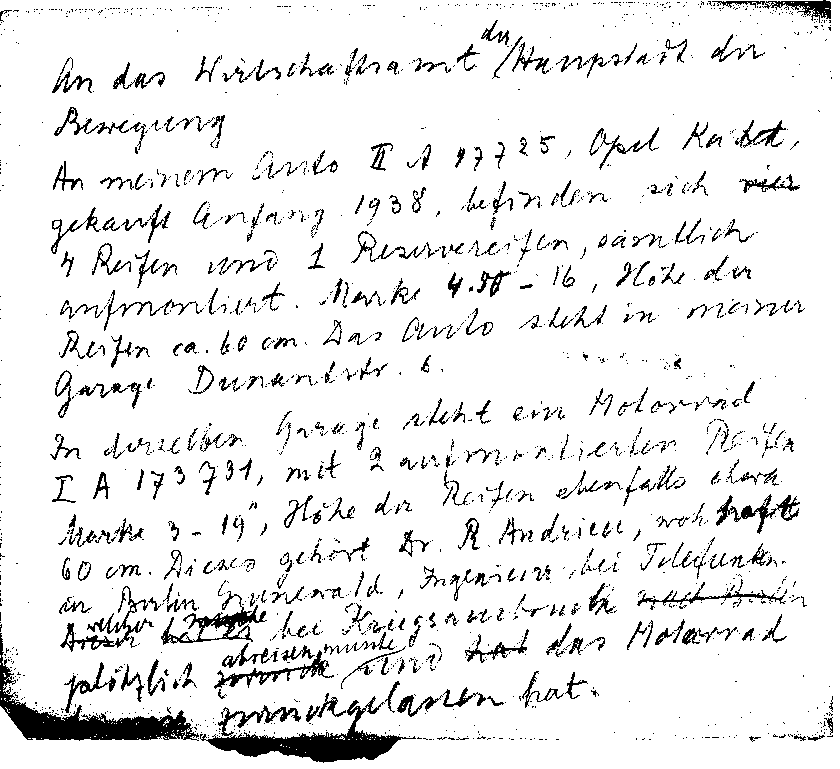 An das Wirtschaftsamt der Haupstadt der
Bewegung
An meinem Auto II A 17725, Opel Kadett,
gekauft Anfang 1938, befinden sich vier
4 Reifen und 1 Reservereifen, sämtlich
aufmontiert. Marke 4.50 - 16, Höhe der
Reifen ca. 60 cm. Das Auto steht in meiner
Garage Dunantstr. 6.
In derselben Garage steht ein Motorrad
I A 173731, mit 2 aufmontierten Reifen
Marke 3 - 19", Höhe der Reifen ebenfalls etwa
60 cm. Dieses gehört Dr. R. Andrieu, wohnhaft
in Berlin Grunewald, Ingenieur bei Telefunken.
Dieser welcher bei Kriegsausbruch nach Berlin
plötzlich zurück abreisen musste und hat das Motorrad
zurückgelassen hat.